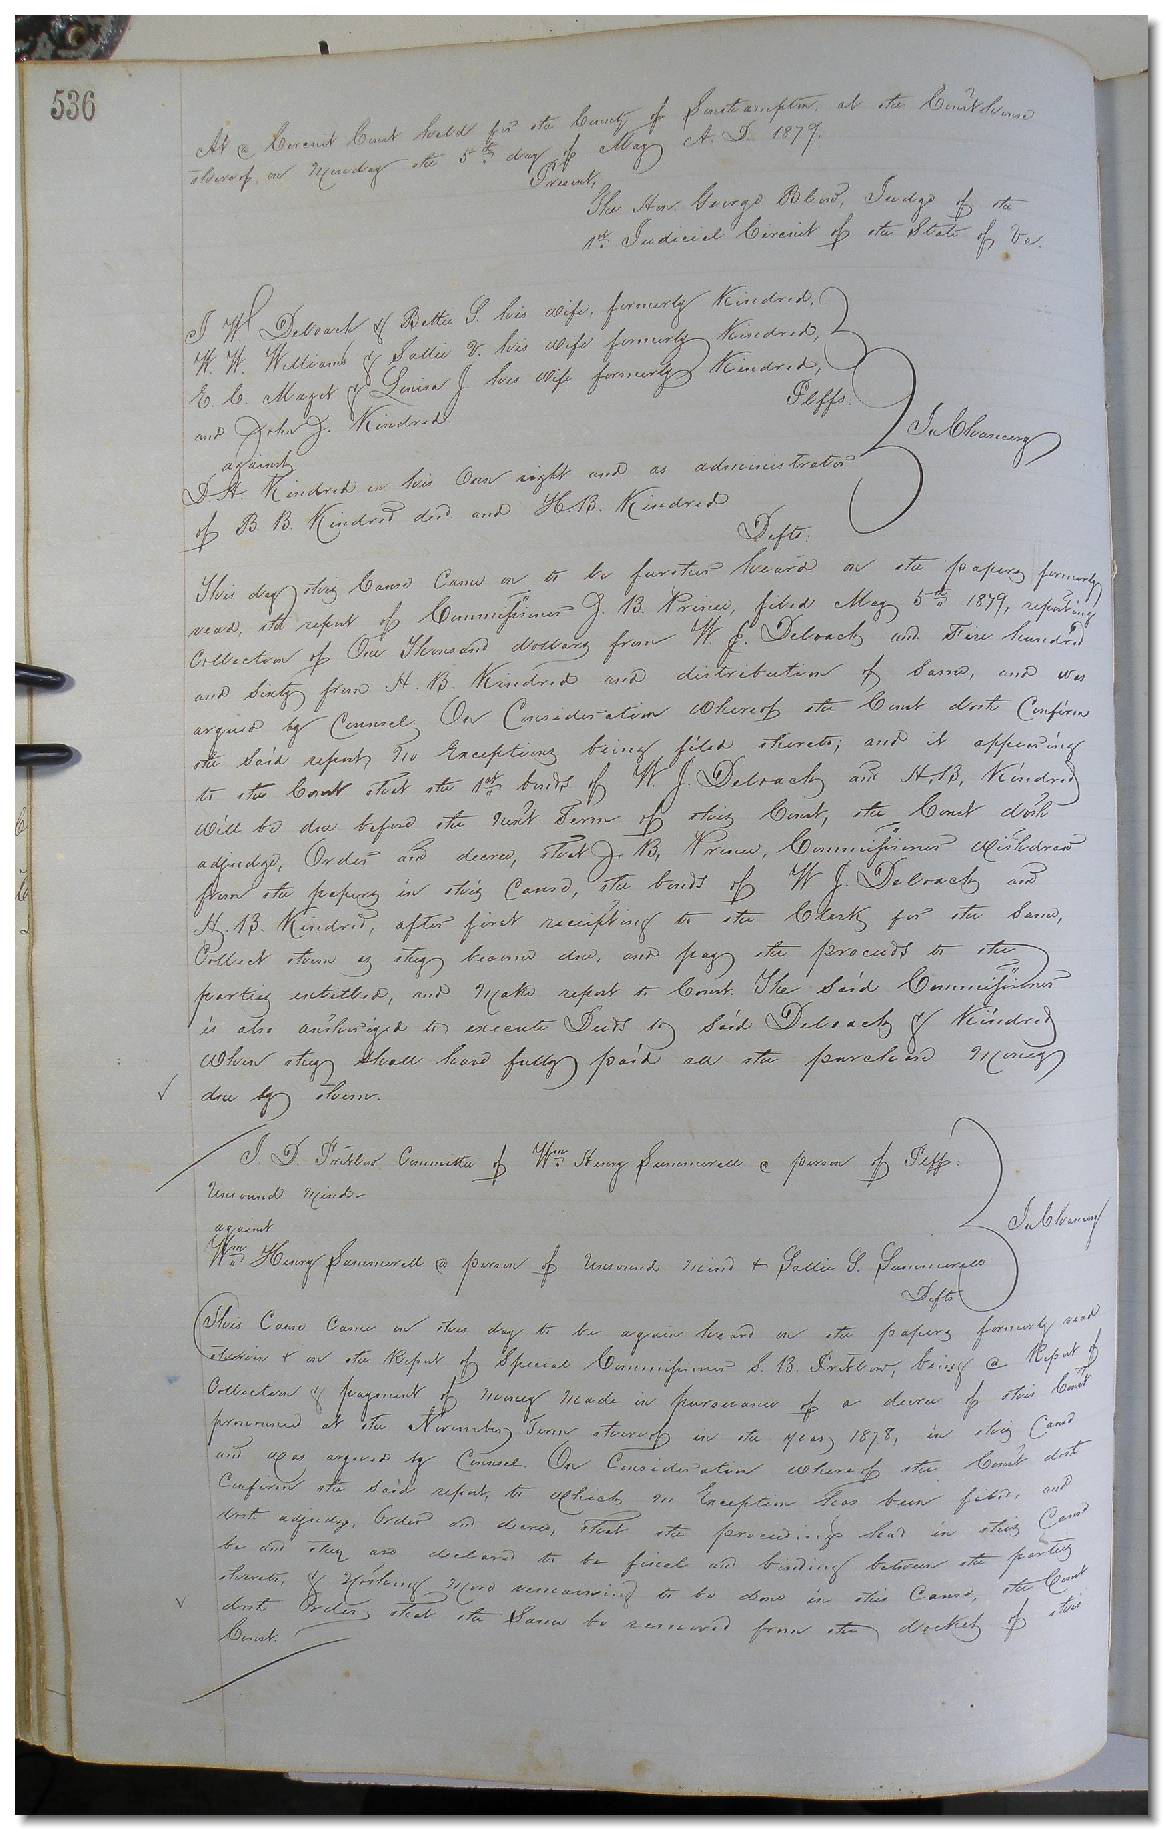 536
At a Circuit Court held for the County of Southampton, at the Courthouse
thereof, on Monday the 5th day of May A. D. 1879.
Present,
The Hon. George Blow, Judge of the
1st Judicial Circuit of the State of Va.
J W Deloach & Bettie S. his wife, formerly Kindred,
W. H. Williams & Sallie V. his wife formerly Kindred,
E. C. Maget & Louisa J. his wife formerly Kindred,
Plffs.
and John J. Kindred
against
In Chancery
D A. Kindred in his Own right and as administrator
of B. B. Kindred decd and H B. Kindred
Defts.
This day this Cause Came on to be further heard on the papers formerly
read, the report of Commissioner J. B. Prince, filed May 5th 1879, reporting
Collection of One Thousand dollars from W. J. Deloach and Five hundred
and Sixty from H. B. Kindred and distribution of Same, and was
argued by Counsel. On Consideration whereof the Court doth Confirm
the Said report, No Exceptions being filed thereto, and it appearing
to the Court that the 1st bonds of W. J. Deloach and H. B. Kindred
will be due before the Next Term of this Court, the Court doth
adjudge, Order and decree, that J. B. Prince, Commissioner withdraw
from the papers in this Cause, the bonds of W J. Deloach and
H. B. Kindred, after first receipting to the Clerk for the Same,
Collect them as they become due, and pay the proceeds to the
parties entitled, and Make report to Court. The Said Commissioner
is also authorized to execute Deeds to Said Deloach & Kindred
When they shall have fully paid all the purchase Money
due by them.
J. D. Pretlow Committee of Wm Henry Summerell a person of Plff.
Unsound Mind
against
In Chancery
Wm Henry Summerell a person of Unsound Mind & Sallie S. Summerell
Defts
This Cause Came on this day to be again heard on the papers formerly read
therein & on the Report of Special Commissioner S. B. Pretlow, being a Report of
Collection & payment of Money Made in pursuance of a decree of this Court
pronounced at the November Term thereof in the year 1878, in this Cause
and was argued by Counsel. On Consideration whereof the Court doth
Confirm the Said report, to which no Exception has been filed, and
doth adjudge, Order and decree, that the proceedings had in this Cause
be and they are declared to be final and binding between the parties
thereto, & Nothing More remaining to be done in this Cause, the Court
doth Order that the Same be removed from the docket of this
Court.